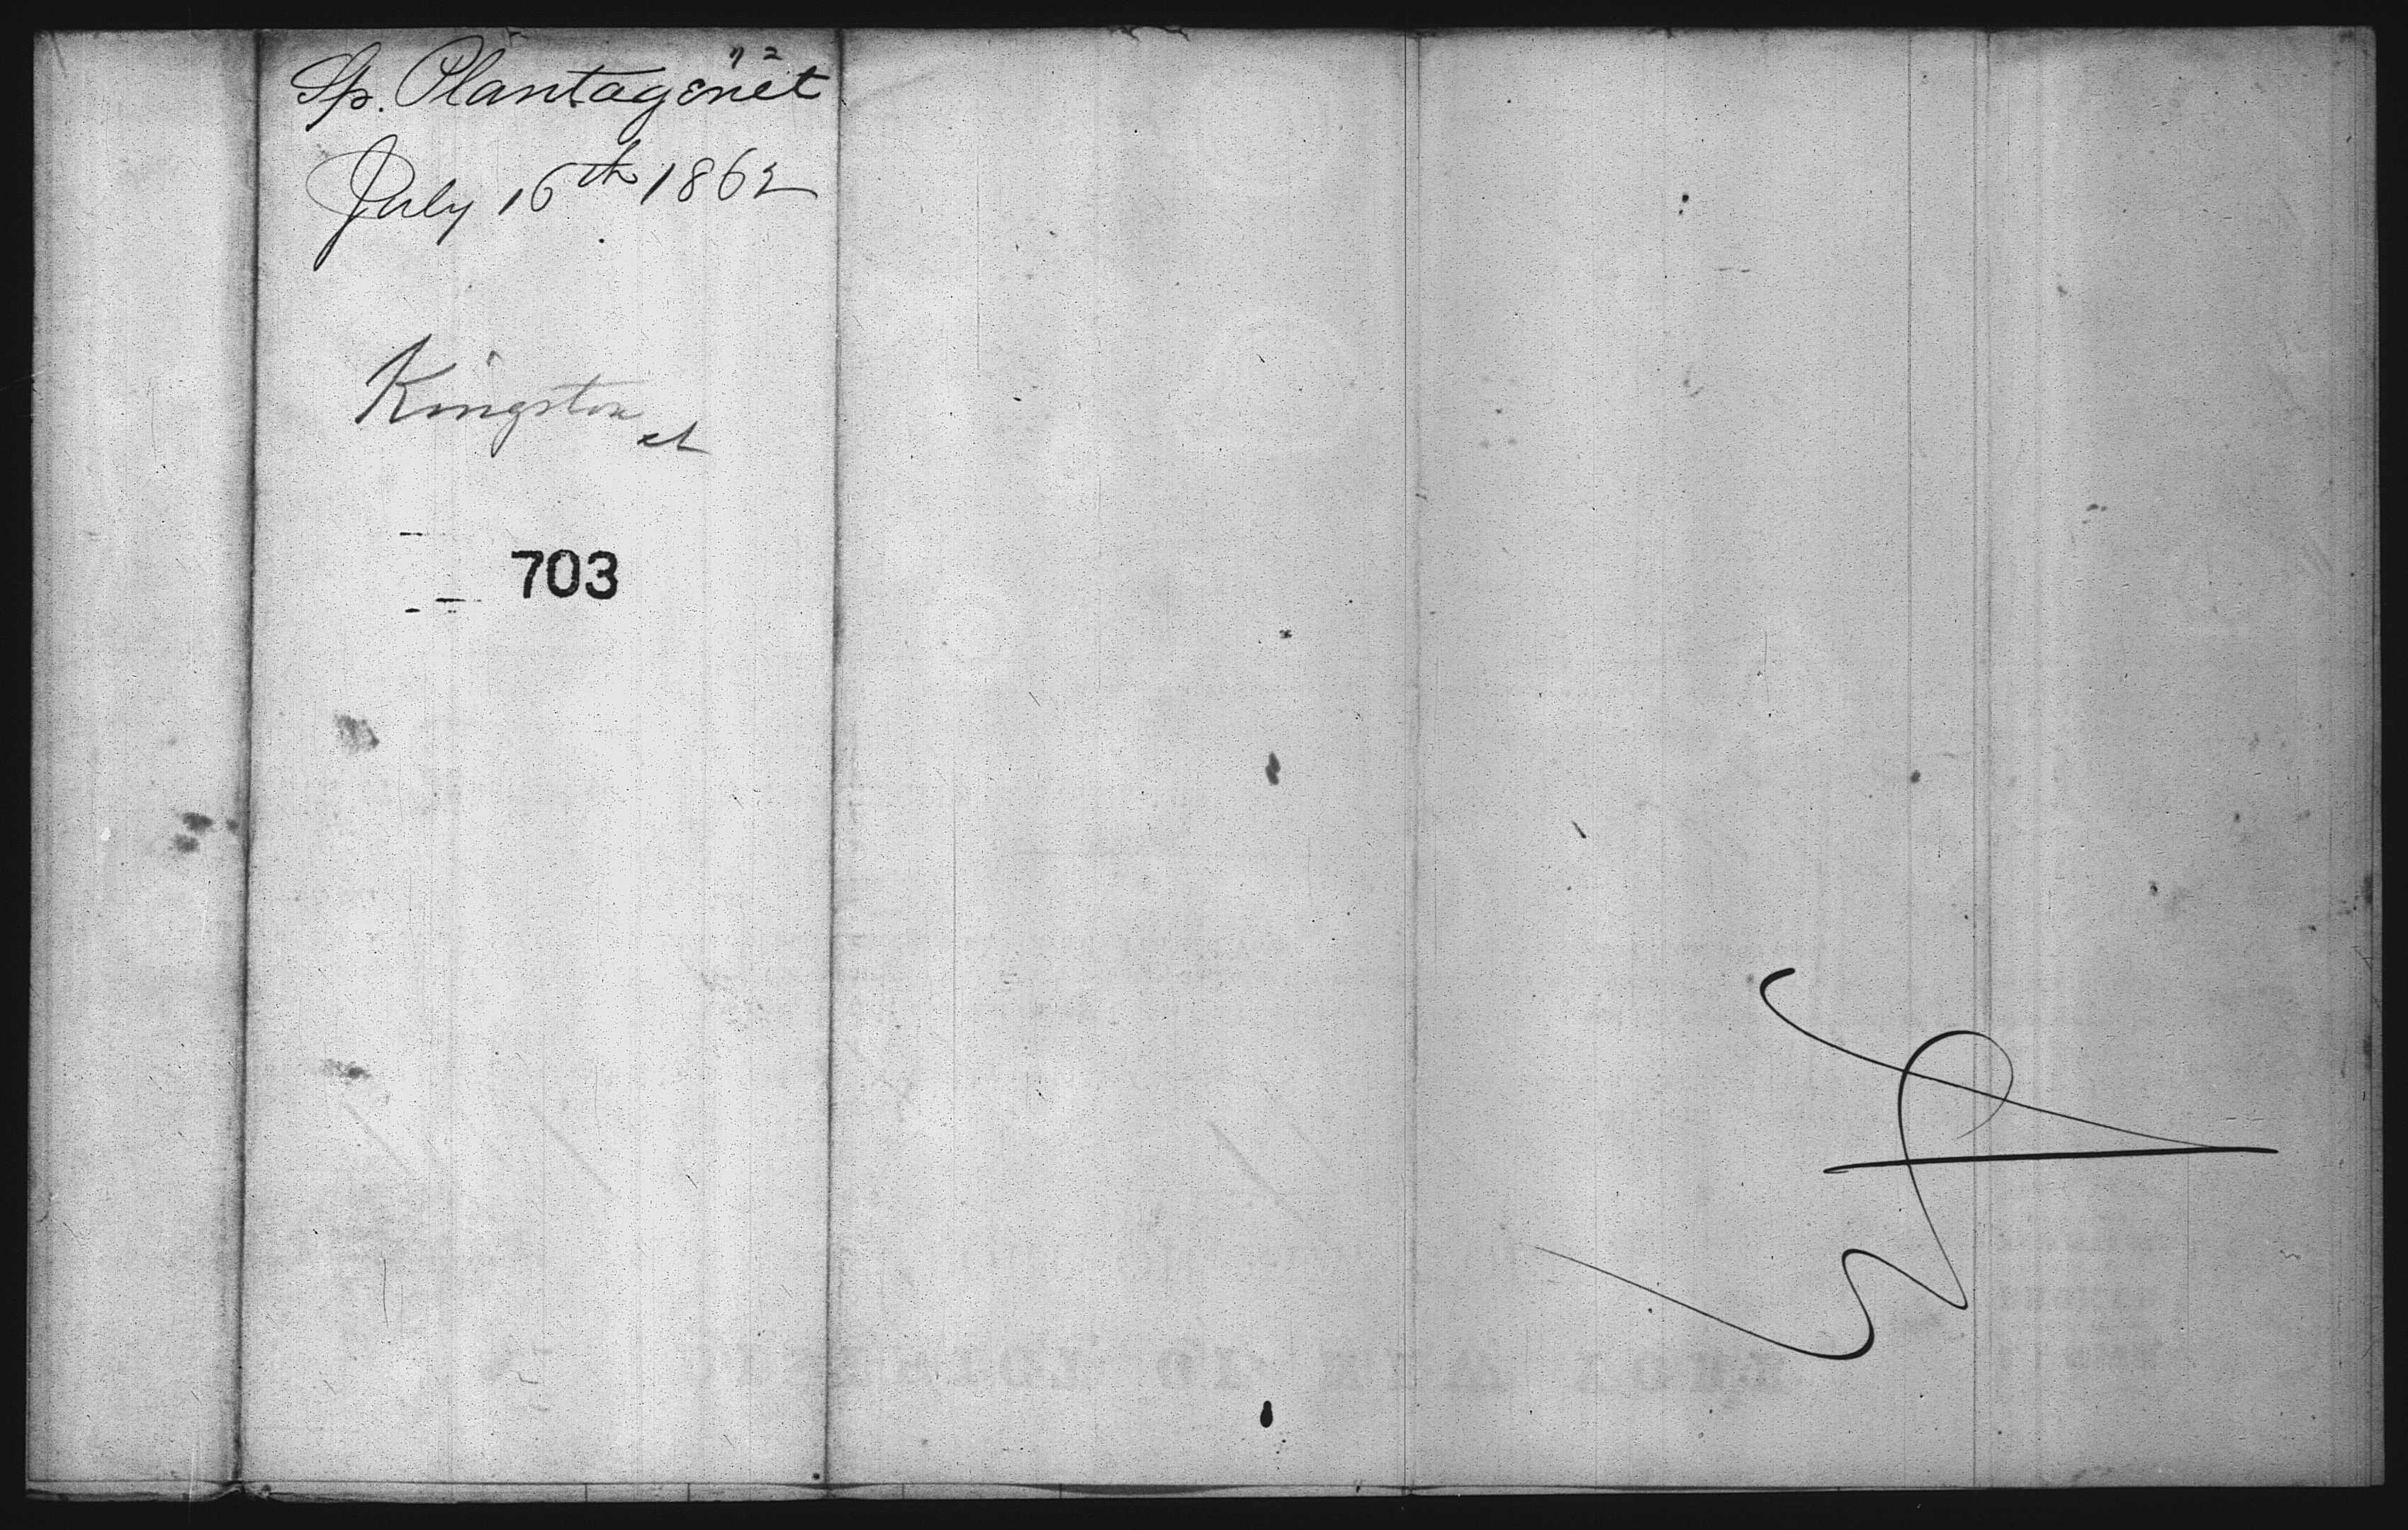 Sp. Plantagenet
July 16th 1862
Kingston
703